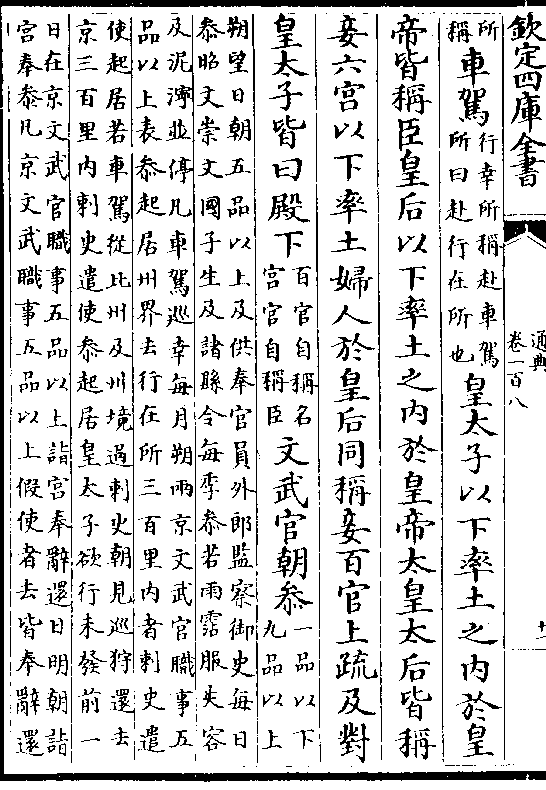 欽定四庫全書
通典
卷一百八
十一
所稱車駕行幸所稱赴車駕所曰赴行在所也皇太子以下率土之内於皇
帝皆稱臣皇后以下率土之内於皇帝太皇太后皆稱
妾六宫以下率土婦人於皇后同稱妾百官上疏及對
皇太子皆曰殿下百官自稱名宫官自稱臣文武官朝叅一品以下九品以上
朔望日朝五品以上及供奉官員外郎監察御史每日
叅昭文崇文國子生及諸縣令每季叅若雨霑服失容
及泥濘並停凡車駕巡幸每月朔兩京文武官職事五
品以上表叅起居州界去行在所三百里内者刺史遣
使起居若車駕從比州及州境過刺史朝見巡狩還去
京三百里内刺史遣使叅起居皇太子欲行未發前一
日在京文武官職事五品以上詣宫奉辭還日明朝詣
宫奉叅凡京文武職事五品以上假使者去皆奉辭還